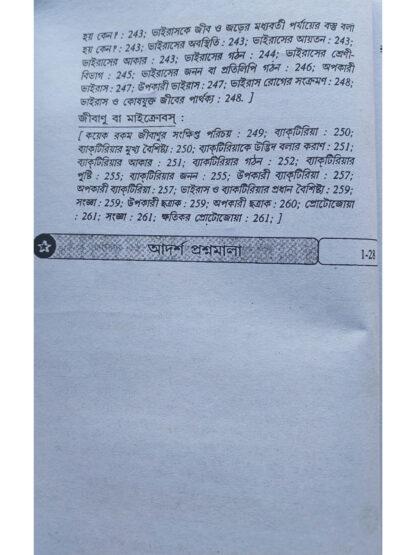 হয় কেন? : 243; ভাইরাসকে জীব ও জড়ের মধ্যবর্তী পর্যায়ের বস্তু বলা
হয় কেন? : 243; ভাইরাসের অবস্থিতি : 243; ভাইরাসের আয়তন : 243;
ভাইরাসের আকার : 243; ভাইরাসের গঠন : 244; ভাইরাসের শ্রেণী-
বিভাগ : 245; ভাইরাসের জনন বা প্রতিলিপি গঠন : 246; অপকারী
ভাইরাস : 247; উপকারী ভাইরাস : 247; ভাইরাস রোগের সংক্রমণ : 248;
ভাইরাস ও কোষযুক্ত জীবের পার্থক্য : 248. ]
জীবাণু বা মাইক্রোবস্ :
[ কয়েক রকম জীবাণুর সংক্ষিপ্ত পরিচয় : 249; ব্যাক্‌টিরিয়া : 250;
ব্যাক্‌টিরিয়ার মুখ্য বৈশিষ্ট্য : 250; ব্যাক্‌টিরিয়াকে উদ্ভিদ বলার কারণ : 251;
ব্যাক্‌টিরিয়ার আকার : 251; ব্যাকটিরিয়ার গঠন : 252; ব্যাক্‌টিরিয়ার
পুষ্টি : 255; ব্যাক্‌টিরিয়ার জনন : 255; উপকারী ব্যাক্‌টিরিয়া : 257;
অপকারী ব্যাক্‌টিরিয়া : 257; ভাইরাস ও ব্যাকটিরিয়ার প্রধান বৈশিষ্ট্য : 259;
সংজ্ঞা : 259; উপকারী ছত্রাক : 259; অপকারী ছত্রাক : 260; প্রোটোজোয়া
: 261; সংজ্ঞা : 261; ক্ষতিকর প্রোটোজোয়া : 261; ]
আদর্শ প্রশ্নমালা
1-28